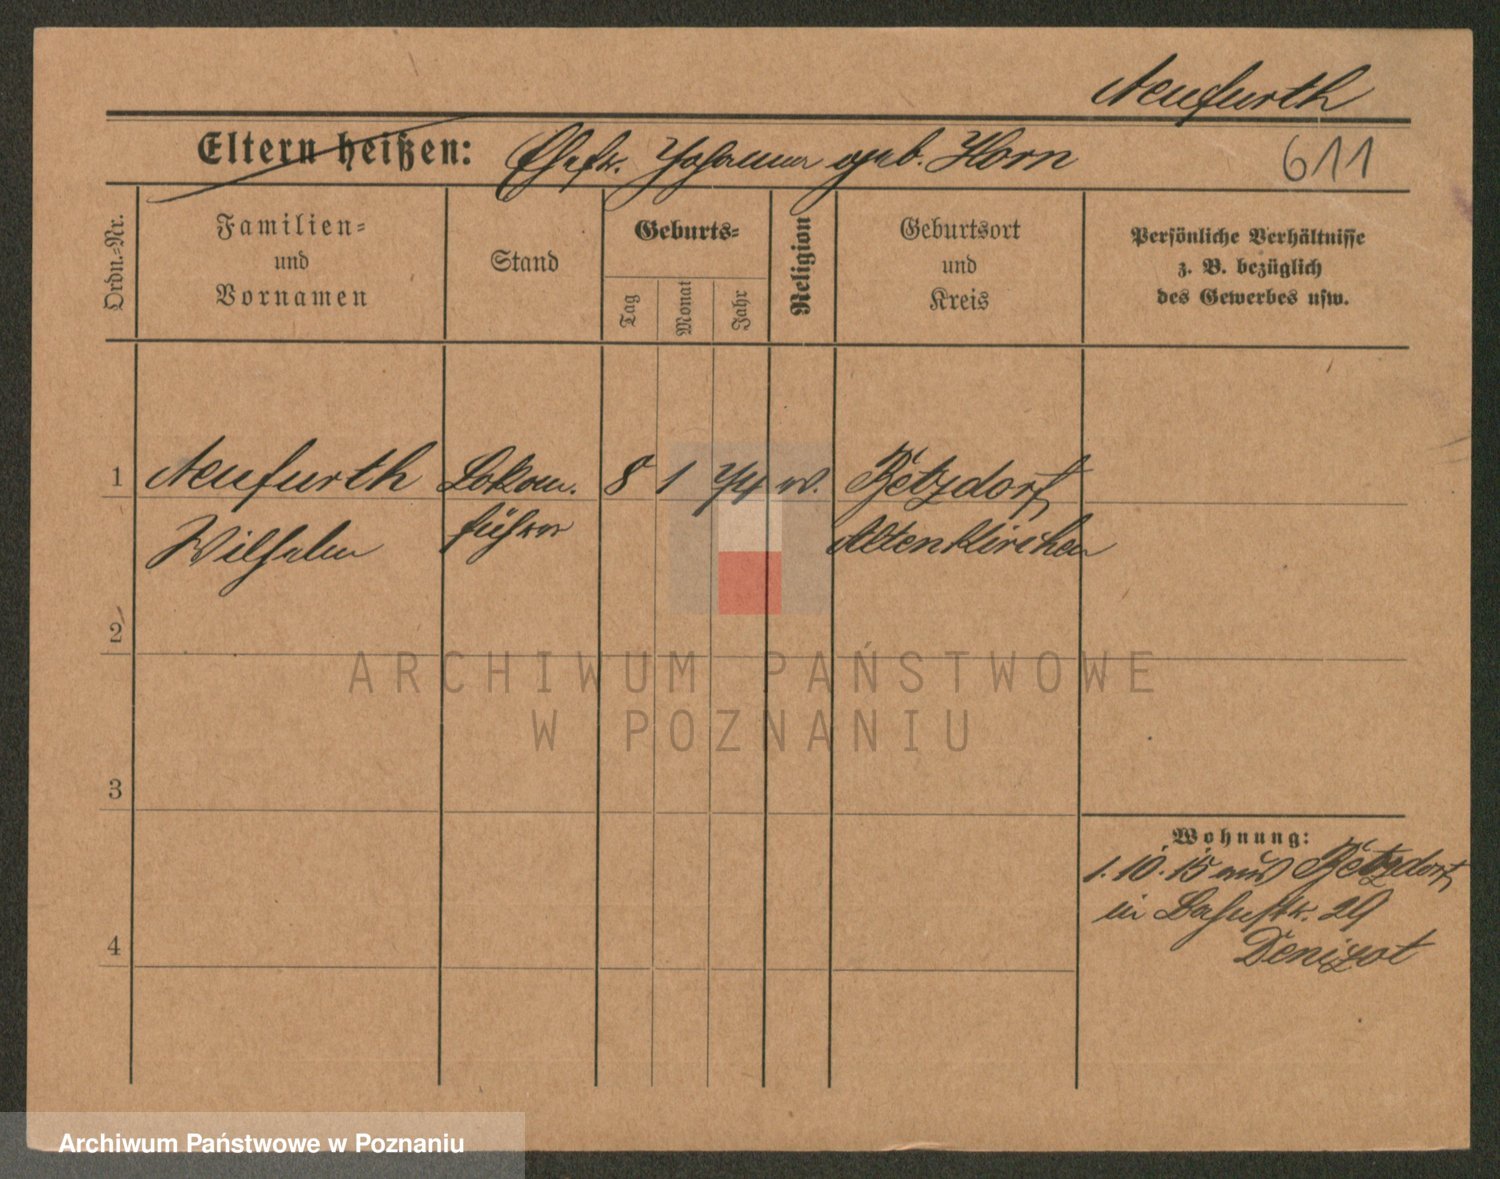 Neufurth
Eltern heißen: Ehefr. Johanna geb. Horn
611
Ordn.-Nr.
Familien-
und
Vornamen
Stand
Geburts-
Tag
Monat
Jahr
Religion
Geburtsort
und
Kreis
Persönliche Verhältnisse
z. B. bezüglich
des Gewerbes usw.
1 Neufurth Lokom. 8 1 74 Betzdorf
Wilhelm führer Altenkirchen
2
3
4
Wohnung:
1. 10. 15 aus Betzdorf
in Bahnstr. 29
Denizot
ARCHIWUM PAŃSTWOWE
W POZNANIU
Archiwum Państwowe w Poznaniu